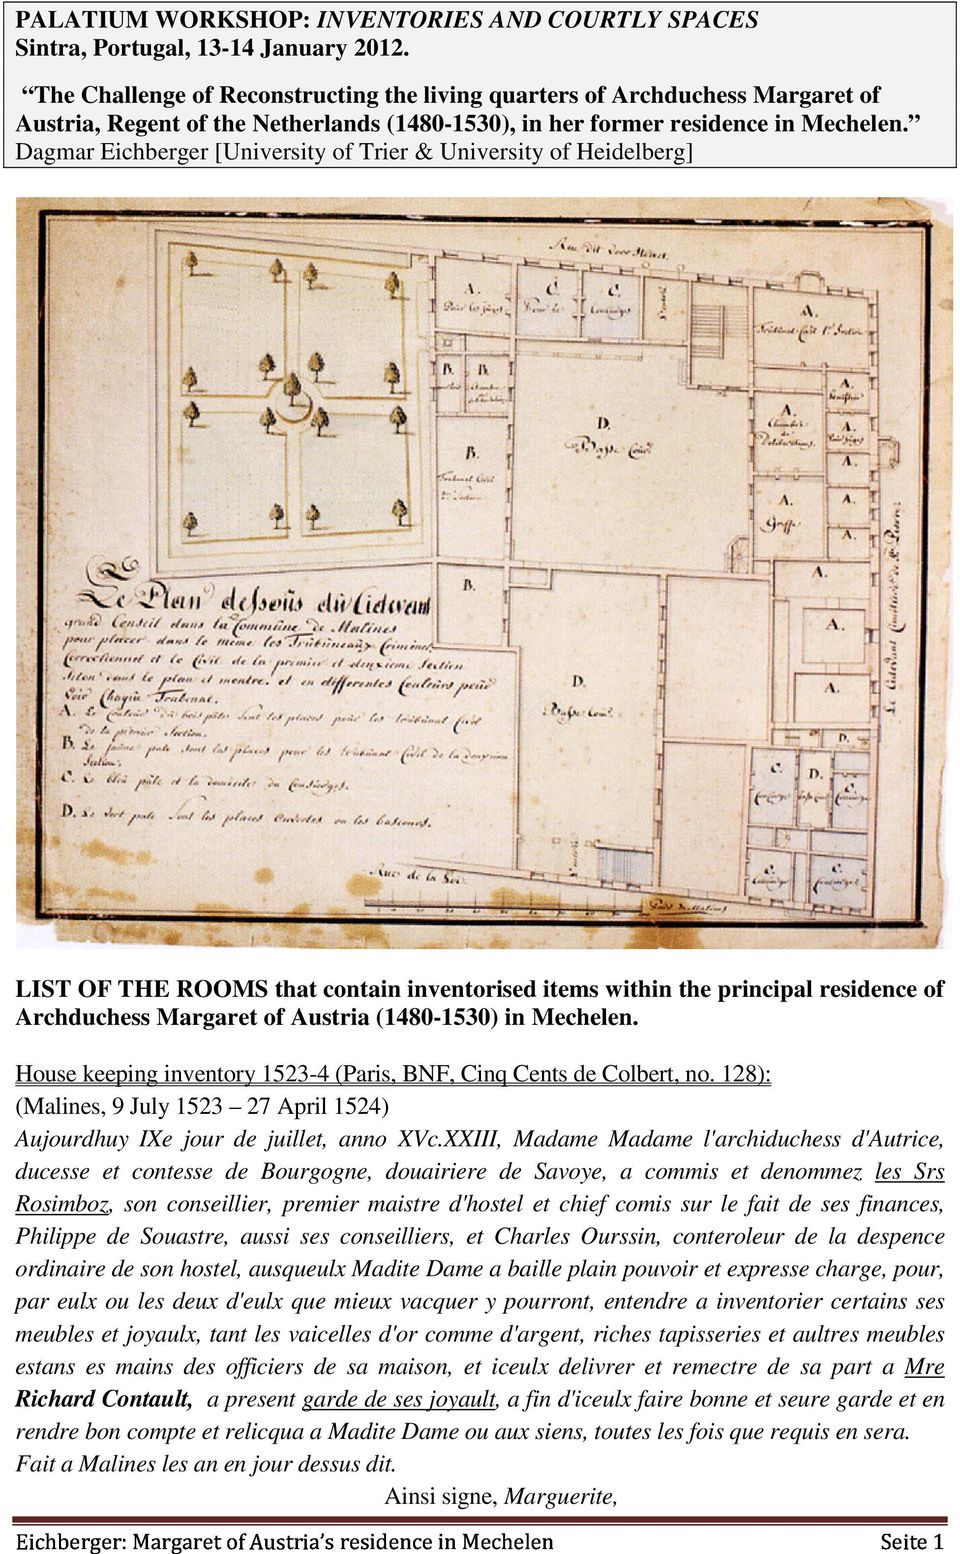 PALATIUM WORKSHOP: INVENTORIES AND COURTLY SPACES
Sintra, Portugal, 13-14 January 2012.
“The Challenge of Reconstructing the living quarters of Archduchess Margaret of
Austria, Regent of the Netherlands (1480-1530), in her former residence in Mechelen.”
Dagmar Eichberger [University of Trier & University of Heidelberg]
Rue dit
A.
Pour les Juges
C.
Pour le
C.
Concierges
A.
Tribunal Civil 1re Section
B.
B.
Chambre
D.
Basse Cour
A.
A.
Chambre
de
Deliberations
A.
Pour Juges
A.
B.
Tribunal Civil
Section
A.
Greffe
A.
A.
B.
A.
A.
D.
Basse Cour
A.
D.
C.
D.
C.
C.
C.
Le Plan dessoùs dù Cidevant
grand Conseil dans la Commùne de Malines
pour placer dans le même les Tribùneaùx Criminel,
Correctionnel et le Civil de la premier et deuxieme Section
Selon dans le plan et montre. et en differentes Couleùrs poùr
Voir Chaqùe Tribunal.
A. Le Couleur du bois pâle sont les places poùr les tribùnal Civil
de la premier Section.
B. Le jaùne pale sont les places pour les tribùnal Civil de la deuxieme
Section.
C. Le bleù pâle et la demeure du Concierges.
D. Le vert pale sont les places ouvertes ou les bascours.
Rue de la
LIST OF THE ROOMS that contain inventorised items within the principal residence of
Archduchess Margaret of Austria (1480-1530) in Mechelen.
House keeping inventory 1523-4 (Paris, BNF, Cinq Cents de Colbert, no. 128):
(Malines, 9 July 1523 – 27 April 1524)
Aujourdhuy IXe jour de juillet, anno XVc.XXIII, Madame Madame l'archiduchess d'Autrice,
ducesse et contesse de Bourgogne, douairiere de Savoye, a commis et denommez les Srs
Rosimboz, son conseillier, premier maistre d'hostel et chief comis sur le fait de ses finances,
Philippe de Souastre, aussi ses conseilliers, et Charles Ourssin, conteroleur de la despence
ordinaire de son hostel, ausqueulx Madite Dame a baille plain pouvoir et expresse charge, pour,
par eulx ou les deux d'eulx que mieux vacquer y pourront, entendre a inventorier certains ses
meubles et joyaulx, tant les vaicelles d'or comme d'argent, riches tapisseries et aultres meubles
estans es mains des officiers de sa maison, et iceulx delivrer et remectre de sa part a Mre
Richard Contault, a present garde de ses joyault, a fin d'iceulx faire bonne et seure garde et en
rendre bon compte et relicqua a Madite Dame ou aux siens, toutes les fois que requis en sera.
Fait a Malines les an en jour dessus dit.
Ainsi signe, Marguerite,
Eichberger: Margaret of Austria’s residence in Mechelen Seite 1